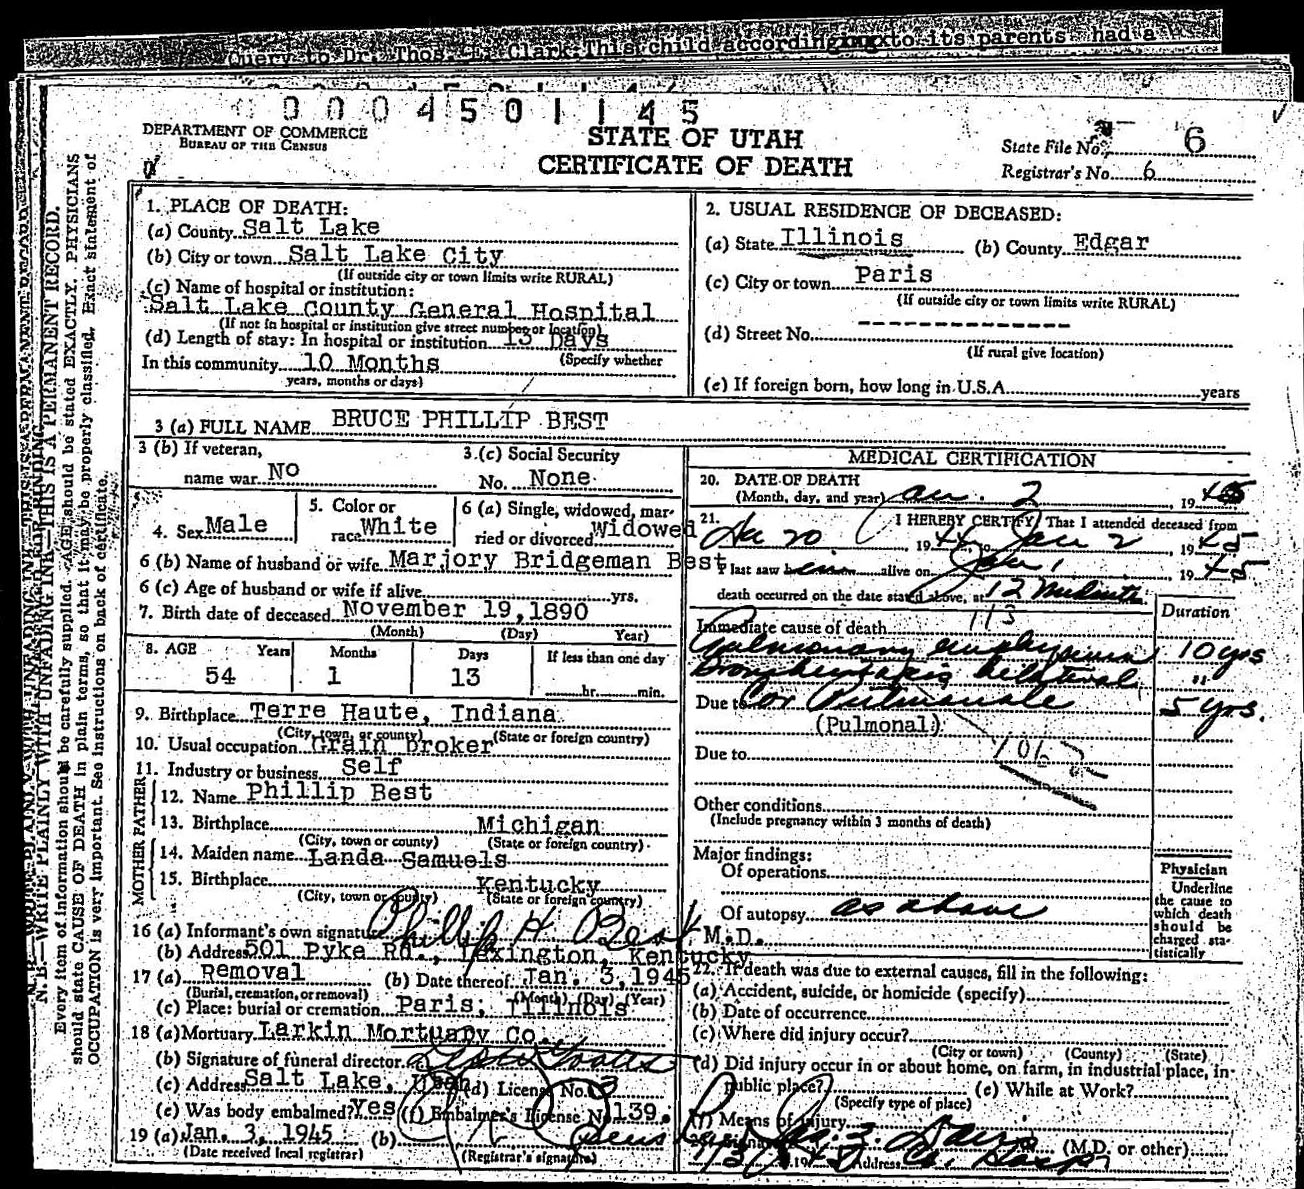 Query to Dr. Thos. L. Clark:This child according to its parents had a
0 0 0 4 5 0 1 1 4 5
DEPARTMENT OF COMMERCE
BUREAU OF THE CENSUS
STATE OF UTAH
CERTIFICATE OF DEATH
State File No. 6
Registrar's No. 6
N. B.—WRITE PLAINLY WITH UNFADING INK—THIS IS A PERMANENT RECORD.
Every item of information should be carefully supplied. AGE should be stated EXACTLY. PHYSICIANS
should state CAUSE OF DEATH in plain terms, so that it may be properly classified. Exact statement of
OCCUPATION is very important. See instructions on back of certificate.
1. PLACE OF DEATH:
(a) County Salt Lake
(b) City or town Salt Lake City
(If outside city or town limits write RURAL)
(c) Name of hospital or institution:
Salt Lake County General Hospital
(If not in hospital or institution give street number or location)
(d) Length of stay: In hospital or institution 13 Days
(Specify whether
In this community 10 Months
years, months or days)
2. USUAL RESIDENCE OF DECEASED:
(a) State Illinois (b) County Edgar
(c) City or town Paris
(If outside city or town limits write RURAL)
(d) Street No. ---------------
(If rural give location)
(e) If foreign born, how long in U.S.A. years
3 (a) FULL NAME BRUCE PHILLIP BEST
3 (b) If veteran,
name war NO
3.(c) Social Security
No. None
4. Sex Male
5. Color or
race White
6 (a) Single, widowed, mar-
ried or divorced Widowed
6 (b) Name of husband or wife Marjory Bridgeman Best
6 (c) Age of husband or wife if alive yrs.
7. Birth date of deceased November 19,1890
(Month) (Day) Year)
8. AGE Years Months Days If less than one day
54 1 13 hr. min.
9. Birthplace Terre Haute, Indiana
(City, town or county) (State or foreign country)
10. Usual occupation Grain broker
11. Industry or business Self
FATHER
12. Name Phillip Best
13. Birthplace Michigan
(City, town or county) (State or foreign country)
MOTHER
14. Maiden name Landa Samuels
15. Birthplace Kentucky
(City, town or county) (State or foreign country)
16 (a) Informant's own signature Phillip H. Best
(b) Address 501 Pyke Rd., Lexington, Kentucky
17 (a) Removal (b) Date thereof Jan. 3,1945
(Burial, cremation, or removal) (Month) (Day) (Year)
(c) Place: burial or cremation Paris, Illinois
18 (a) Mortuary Larkin Mortuary Co.
(b) Signature of funeral director
(c) Address Salt Lake, Utah (d) License No. 3
(e) Was body embalmed? Yes (f) Embalmer's License No. 139.
19 (a) Jan. 3, 1945 (b)
(Date received local registrar) (Registrar's signature)
MEDICAL CERTIFICATION
20. DATE OF DEATH
(Month, day, and year) Jan. 2, 1945
21. I HEREBY CERTIFY, That I attended deceased from
Dec 20, 1944, to Jan 2, 1945
I last saw him alive on Jan 1, 1945
death occurred on the date stated above, at 12 Midnite
113
Immediate cause of death
Duration
Pulmonary emphysema 10 yrs
Bronchiectasis bilateral "
Due to Cor Pulmonale 5 yrs.
(Pulmonal)
106
Due to
Other conditions
(Include pregnancy within 3 months of death)
Major findings:
Of operations
Of autopsy as above
M.D.
Physician
Underline
the cause to
which death
should be
charged sta-
tistically
22. If death was due to external causes, fill in the following:
(a) Accident, suicide, or homicide (specify)
(b) Date of occurrence
(c) Where did injury occur?
(City or town) (County) (State)
(d) Did injury occur in or about home, on farm, in industrial place, in-
public place? (e) While at Work?
(Specify type of place)
(f) Means of injury
(M.D. or other)
1/3 1945 Address Co. Hosp.